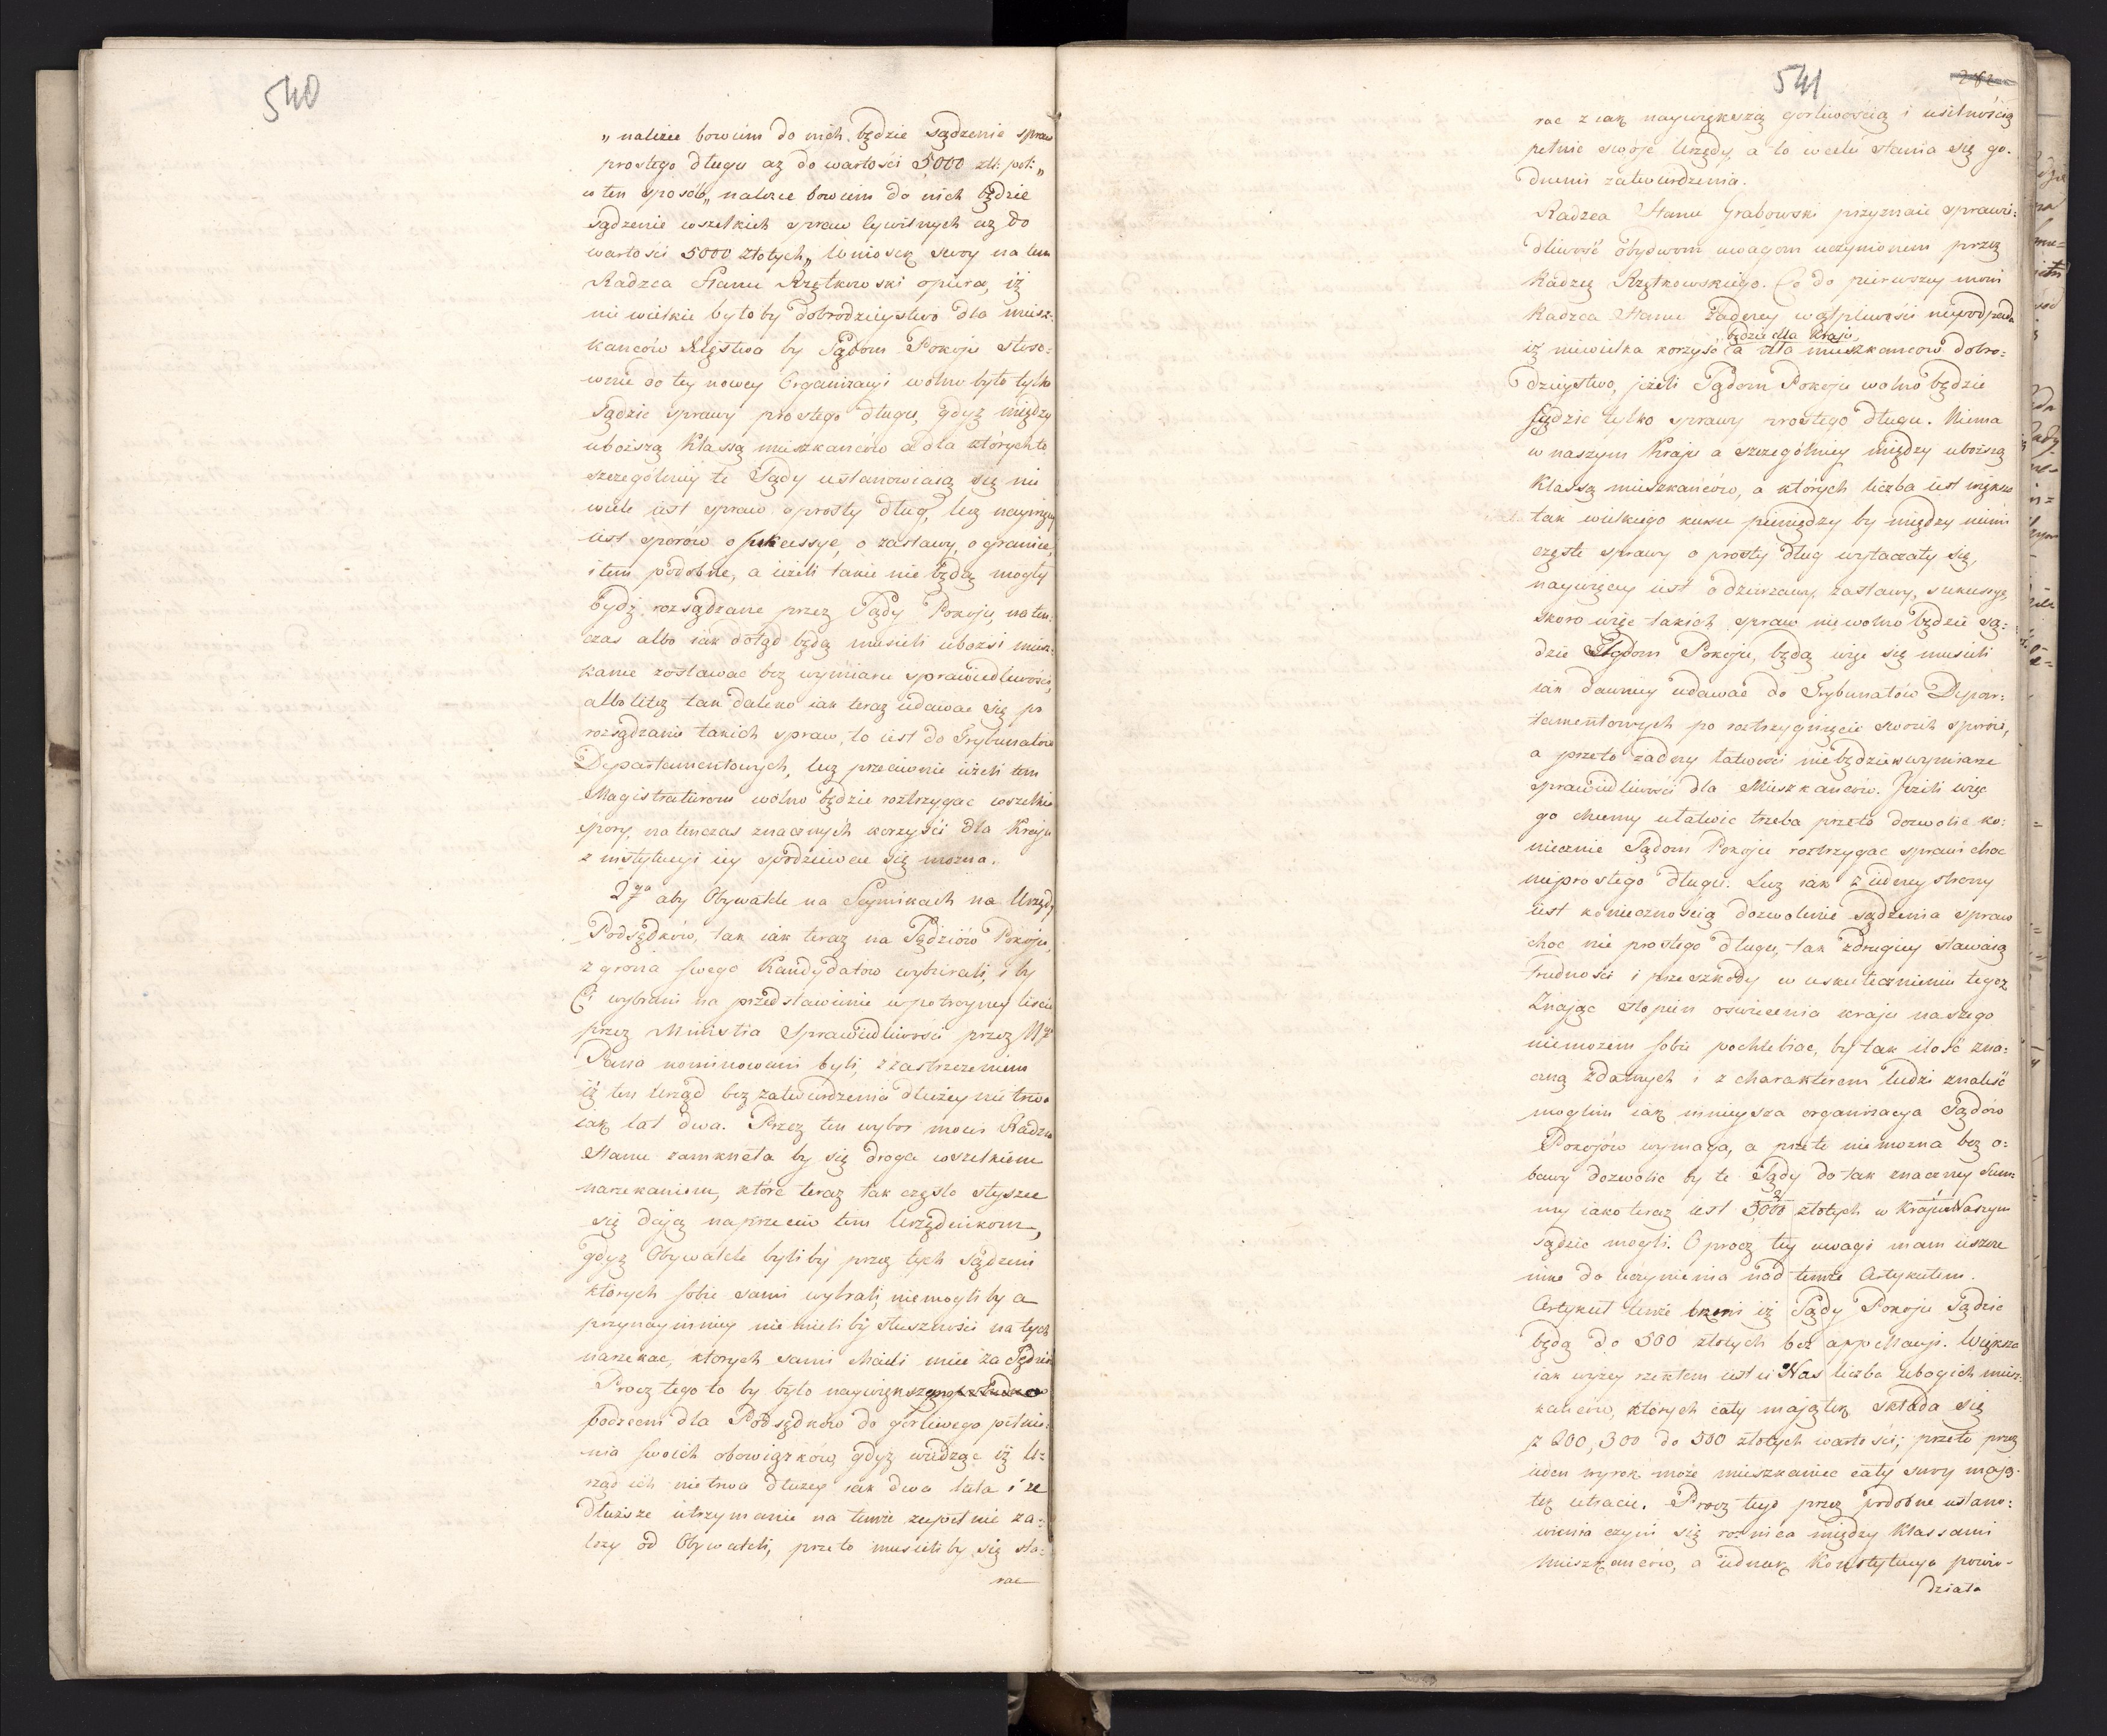 540
„ należeć bowiem do nich będzie sądzenie spraw
prostego długu aż do wartości 5,000 złł: pol: „
w ten sposób „ należeć bowiem do nich będzie
sądzenie wszelkich spraw cywilnych aż do
wartości 5000 złotych „ Wniosek swoy na tem
Radzca Stanu Rzętkowski opiera, iż
nie wielkie byłoby dobrodzieystwo dla miesz-
kańców Xięstwa by Sądom Pokoju stoso-
wnie do tey nowey Organizacyi wolno było tylko
sądzić sprawy prostego długu, gdyż między
uboższą Klassą mieszkańców a dla których to
szczególniey te Sądy ustanowiaią się nie
wiele iest spraw o prosty dług, lecz naywięcey
iest sporów o sukcessye, o zastawy, o granice,
i tem podobne, a ieżeli takie nie będą mogły
bydź rozsądzane przez Sądy Pokoju, na ten-
czas albo iak dotąd będą musieli ubożsi miesz-
kańce zostawać bez wymiaru sprawiedliwości,
albo też tak daleko iak teraz udawać się po
rozsądzanie takich spraw, to iest do Trybunałów
Departamentowych, lecz przeciwnie ieżeli tem
Magistraturom wolno będzie roztrzygać wszelkie
spory, na tenczas znacznych korzyści dla Kraju
z instytucyi iey spodziewać się można.
2go aby Obywatele na Seymikach na Urzędy
Podsędków, tak iak teraz na Sędziów Pokoju,
z grona swego Kandydatów wybierali, i by
Ci wybrani na przedstawienie w potroyney liście
przez Ministra Sprawiedliwości przez Nyo
Pana nominowani byli, z zastrzeżeniem
iż ten Urząd bez zatwierdzenia dłużey nie trwa
iak lat dwa. Przez ten wybór mówi Radzca
Stanu zamknęła by się droga wszelkiem
narzekaniom, które teraz tak często słyszeć
się dają naprzeciw tem Urzędnikom,
gdyż Obywatele byliby przez tych sądzeni
których sobie sami wybrali, niemogliby a
przynaymniey nie mieliby słuszności na tych
narzekać, których sami chcieli mieć za Sędziów
Procz tego to by było naywiększym
bodzcem dla Podsędków do gorliwego pełnie-
nia swoich obowiązków, gdyż wiedząc iż U-
rząd ich nie trwa dłużey iak dwa lata i że
dłuższe utrzymanie na temże zupełnie za-
leży od Obywateli, przeto musieliby się sta-
rać
541
rać z iak naywiększą gorliwością i usilnością
pełnić swoje Urzędy, a to w celu stania się go-
dnemi zatwierdzenia.
Radzca Stanu Grabowski przyznaie sprawie-
dliwość obydwom uwagom uczynionem przez
Radzcę Rzętkowskiego. Co do pierwszey mówi
Radzca Stanu żadney wątpliwości niepodpada
będzie dla Kraju,
iż niewielka korzyść a dla mieszkańców dobro-
dzieystwo, jeżeli Sądom Pokoju wolno będzie
sądzić tylko sprawy prostego długu. Niema
w naszym Kraju a szczególniey między uboższą
Klassą mieszkańców, a których liczba iest większa
tak wielkiego kursu pieniędzy by między niemi
częste sprawy o prosty dług wytaczały się,
naywięcey iest o dzierżawy, zastawy, sukcessye,
skoro więc takich spraw nie wolno będzie są-
dzić Sądom Pokoju, będą więc się musieli
iak dawniey udawać do Trybunałów Depar-
tamentowych po roztrzygnięcie swoich sporów,
a przeto żadney łatwości nie będzie w wymiarze
sprawiedliwości dla Mieszkańców. Jeżeli więc
go chcemy ułatwić trzeba przeto dozwolić ko-
niecznie Sądom Pokoju roztrzygać sprawi choć
nieprostego długu. Lecz iak z iedney strony
iest koniecznością dozwolenie sądzenia spraw
choć nie prostego długu, tak z drugiey stawaią
trudności i przeszkody w uskutecznieniu tegoż
Znając stopień oświecenia kraju naszego
niemożem sobie pochlebiać, by tak ilość zna-
czną zdatnych i z charakterem ludzi znaleść
mogliśm iak ninieysza organizacya Sądów
Pokojów wymaga, a przeto nie można bez o-
bawy dozwolić by te Sądy do tak znaczney Sum-
my iako teraz iest 5,000 złotych w Kraju Naszym
sądzić mogli. Oprocz tey uwagi mam ieszcze
inne do uczynienia nad temże Artykułem.
Artykuł tenże brzmi iż Sądy Pokoju sądzić
będą do 500 złotych bez appellacyi. Większa
iak wyżey rzekłem iest u Nas liczba ubogich miesz-
kańców, których cały majątek składa się
z 200, 300 do 500 złotych wartości, przeto przez
ieden wyrok może mieszkaniec cały swoy mają-
tek utracić. Procz tego przez podobne ustano-
wienia czyni się roźnica między Klassami
Mieszkańców, a iednak Konstytucya powie-
działa